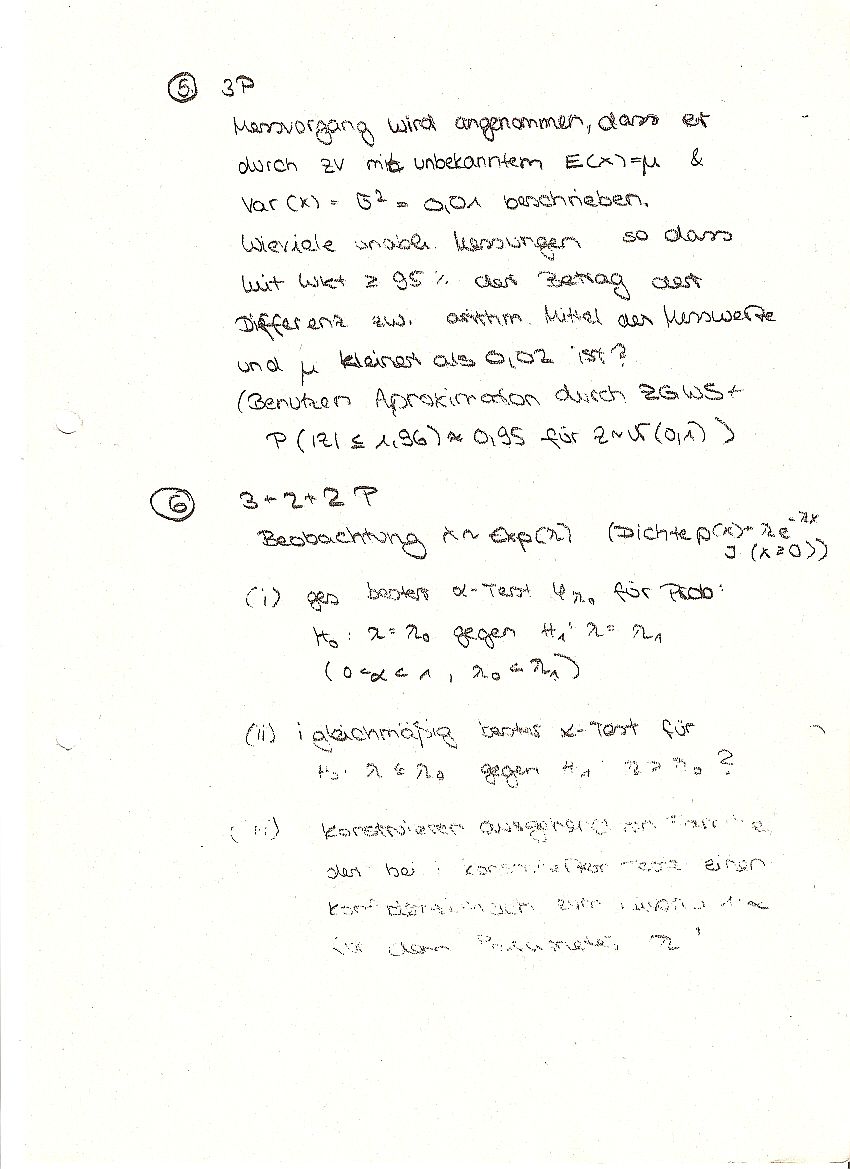 ⑤ 3P
Messvorgang wird angenommen, dass er
durch ZV mit unbekanntem E(X)=μ &
Var(X) = σ² = 0,01 beschrieben.
Wieviele unabh. Messungen so dass
mit Wkt ≥ 95% der Betrag der
Differenz zw. arithm. Mittel der Messwerte
und μ kleiner als 0,02 ist?
(Benutzen Aproximation durch ZGWS +
P(|Z| ≤ 1,96) ≈ 0,95 für Z~N(0,1))
⑥ 3+2+2 P
Beobachtung X ~ Exp(λ) (Dichte p(x) = λe^{-λx}
I(x≥0))
(i) ges bester α-Test φ_{λ₀} für Prob:
H₀: λ=λ₀ gegen H₁: λ=λ₁
(0<α<1, λ₀<λ₁)
(ii) i gleichmäßig bester α-Test für
H₀: λ ≤ λ₀ gegen H₁: λ > λ₀ ?
(iii) Konstruieren ausgehend von
der bei i einen
zum 1-α
für den Parameter λ